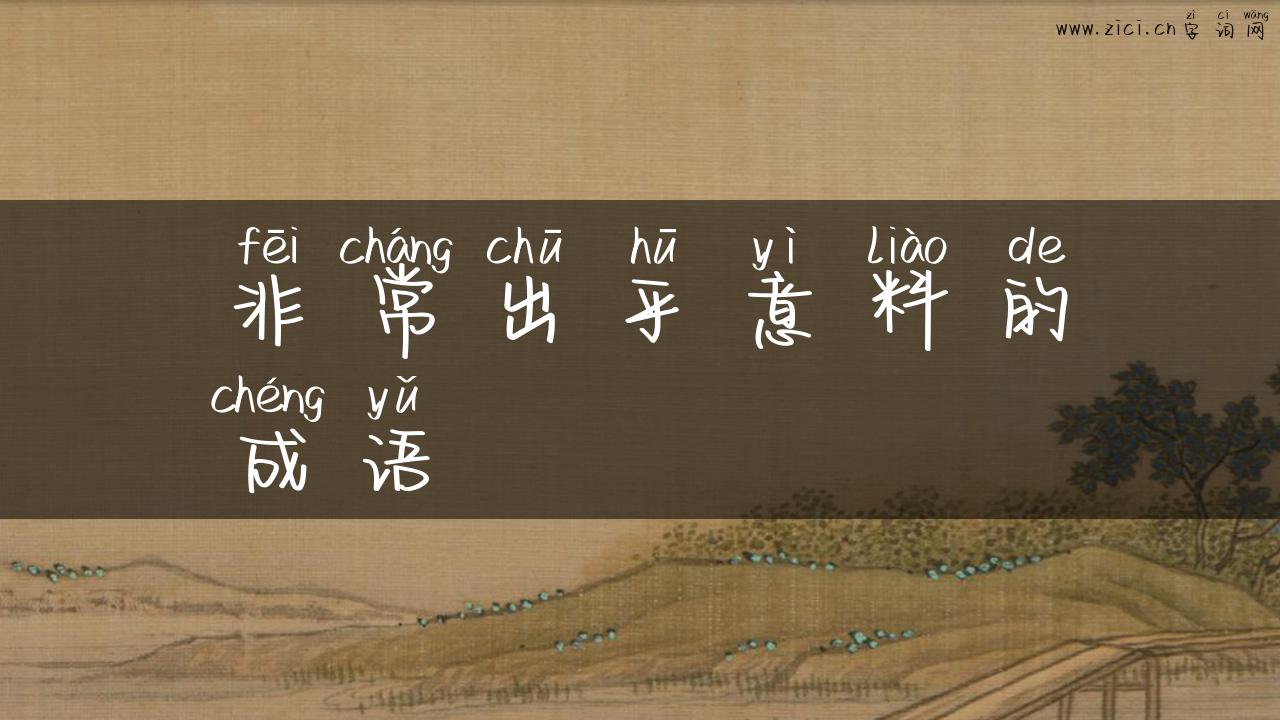 zì cí wǎng
www.zici.cn 字 词 网
fēi cháng chū hū yì liào de
非 常 出 乎 意 料 的
chéng yǔ
成 语